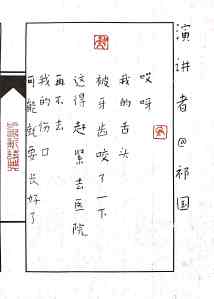 演讲者@祁国
哎呀
我的舌头
被牙齿咬了一下
这得赶紧去医院
再不去
我的伤口
可能就要长好了